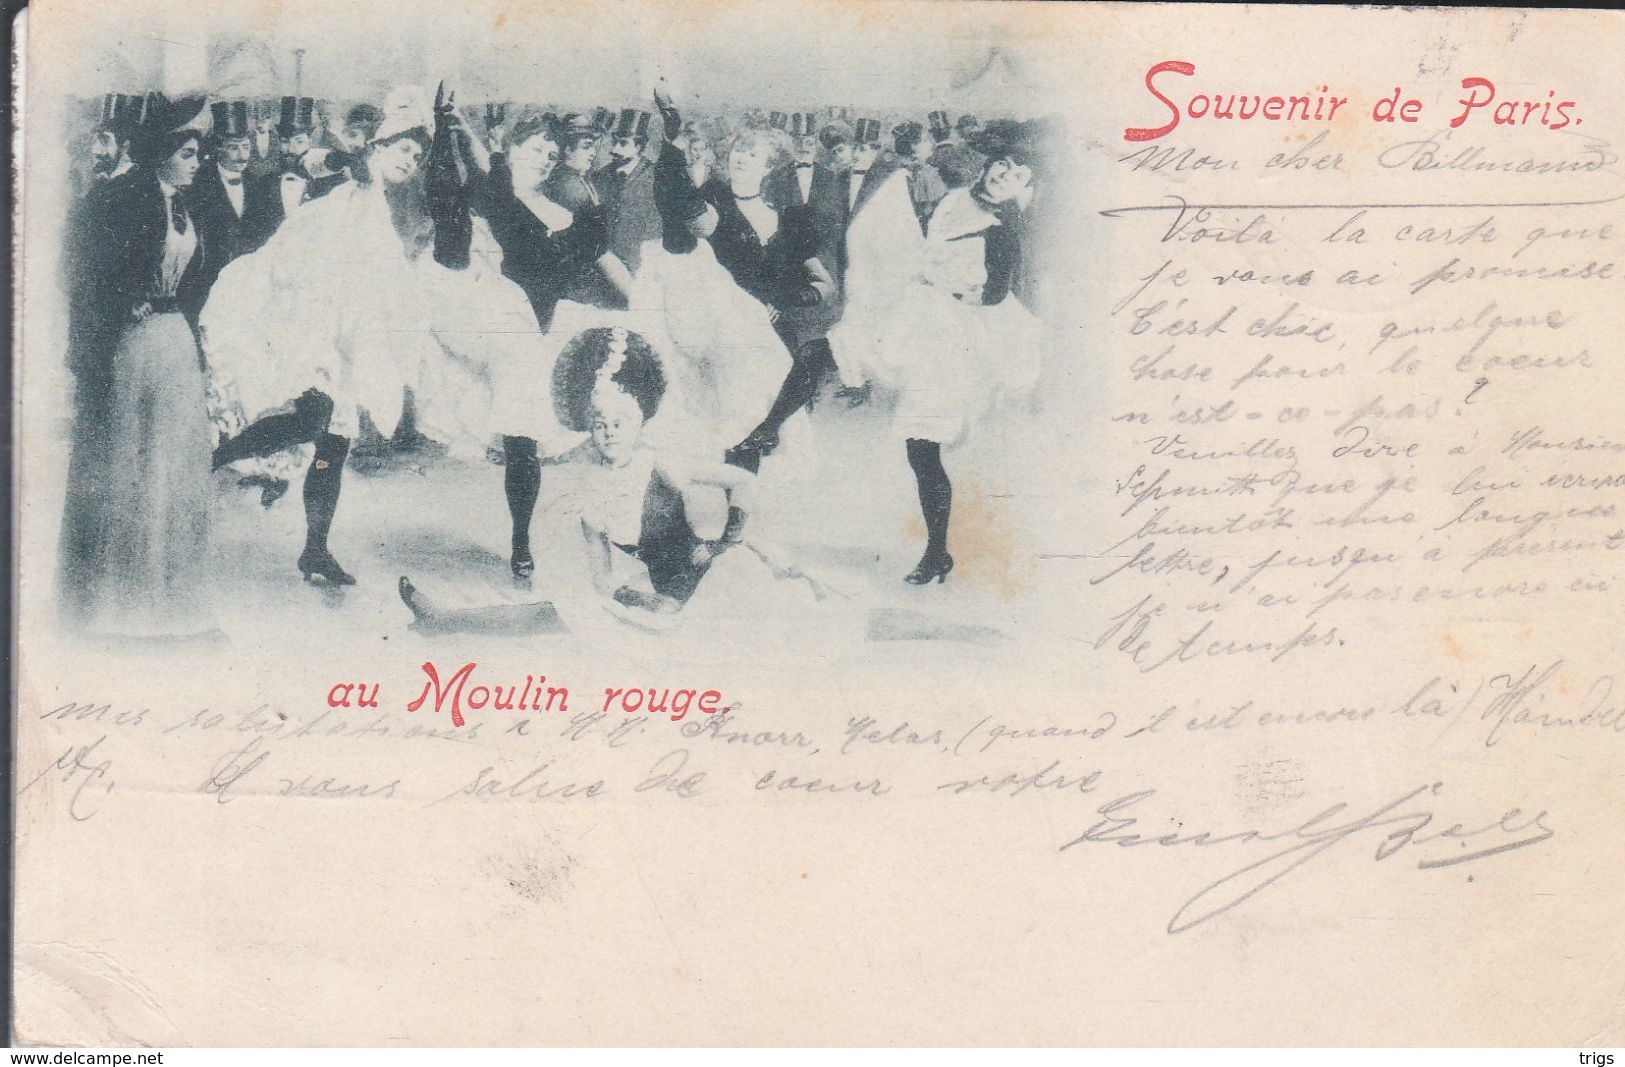 Souvenir de Paris.
Mon cher Billmann
Voilà la carte que
je vous ai promise.
C'est chic, quelque
chose pour le coeur
n'est-ce-pas?
Veuillez dire à Monsieur
Schmitt que je lui écrirai
bientôt une longue
lettre, jusqu'à présent
je n'ai pas encore eu
de temps.
au Moulin rouge.
mes salutations à M M. Knorr, Halas, (quand il est encore là) Händel
etc. Il vous salue de coeur votre
www.delcampe.net
trigs